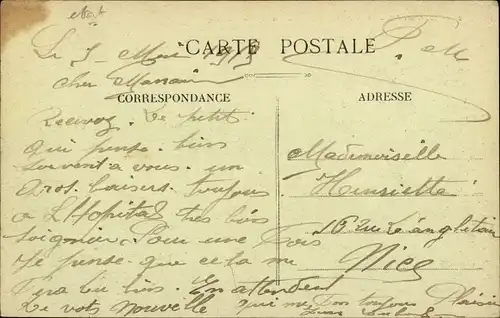 CARTE POSTALE
Le 5 Mai 1915
cher Marraine
CORRESPONDANCE
ADRESSE
Recevoz. Le petit
qui pense. bien
souvent a vous. un
Gros baisers toujours
a L'Hopital tres bien
soigner. Pour une fois
Je pense que cela me
fera du bien. En attendent
De vots nouvelle qui me font toujours Plaisir
Mademoiselle
Henriette
16 rue
Nice